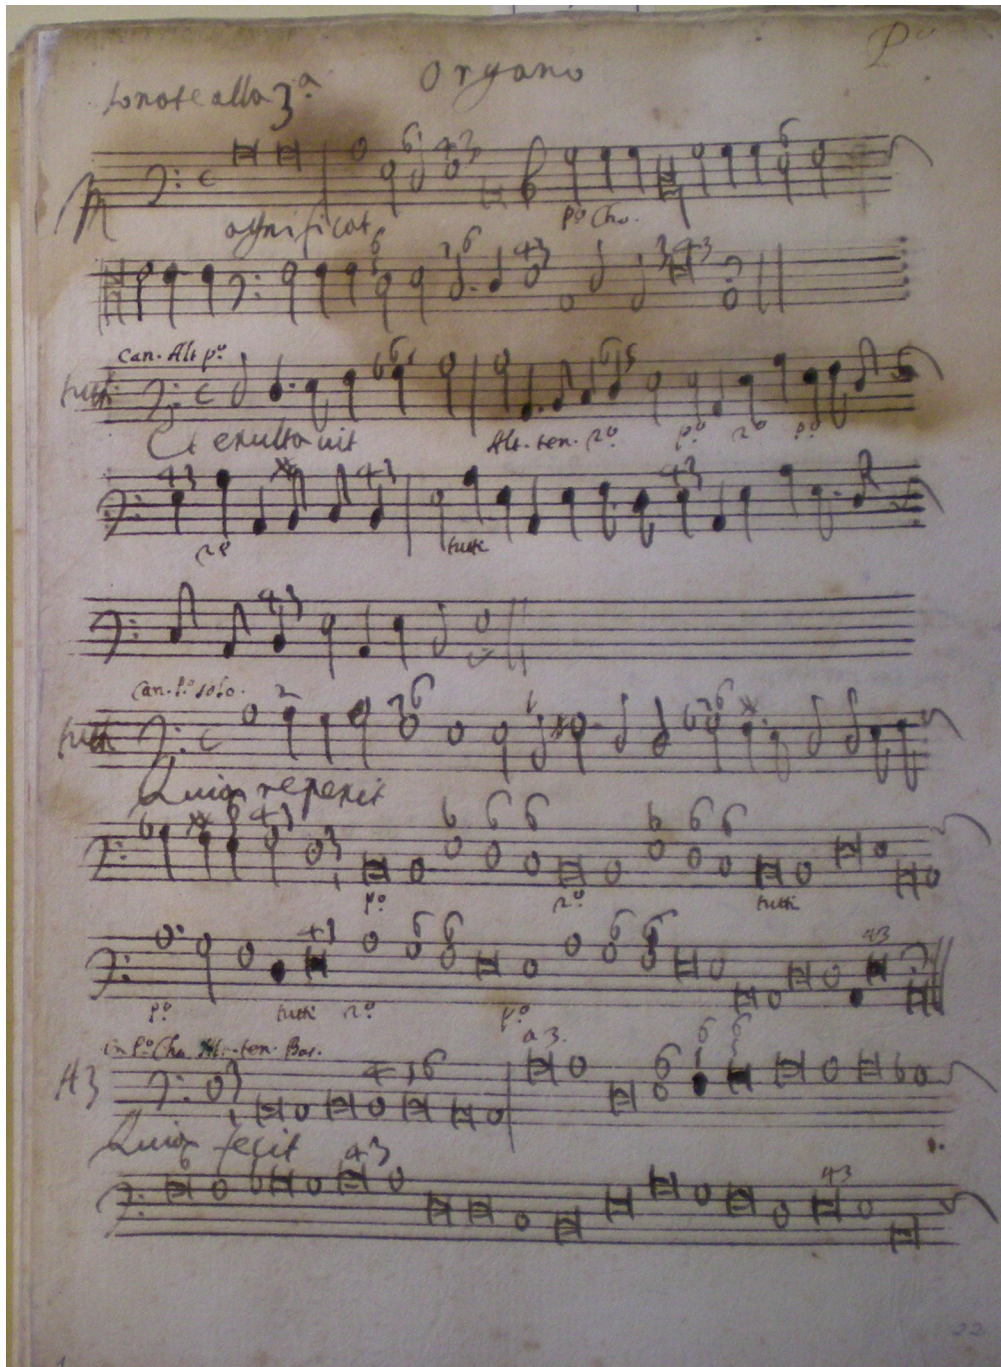 Organo
Pº
sonate alla 3ª
6 43 6
Magnificat pº Cho.
6 6 43 43
Can. Alt pº
tutti 6 6 6 5
Et exultavit Alt. ten. 2º pº 2º pº
43 43 43
2º tutti
43
Can. Pº solo. 2
tutti 6 6 6
Quia respexit
6 6 43 6 6 6 6 6 6
pº 2º tutti
43 6 6 6 6 43
pº tutti 2º pº
in Pº Cho Alt. ten. Bas. a 3.
A3 4 6 6 6 6
Quia fecit
6 43 43
22